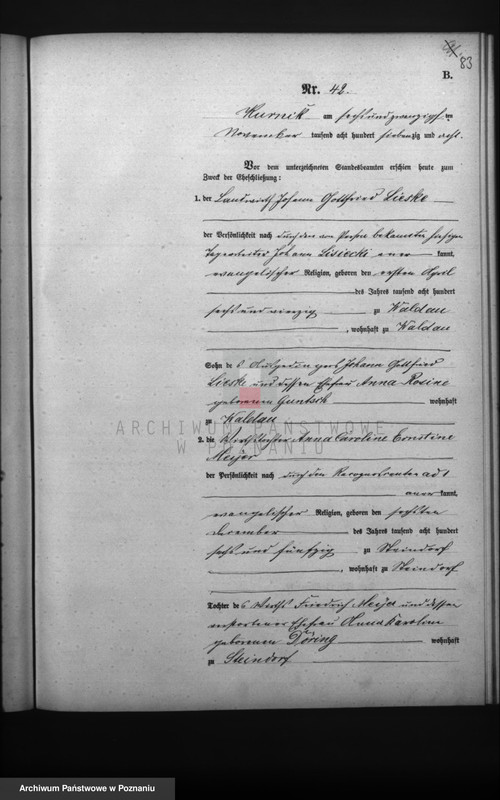 83
B.
Nr. 42.
Kurnik am sechsundzwanzigsten
November tausend acht hundert siebenzig und acht.
Vor dem unterzeichneten Standesbeamten erschien heute zum
Zweck der Eheschließung:
1. der Landwirth Johann Gottfried Lieske
der Persönlichkeit nach durch den von Person bekannten
Johann Lisiecki aner kannt,
evangelischer Religion, geboren den ersten April
des Jahres tausend acht hundert
sechs und vierzig zu Waldau
, wohnhaft zu Waldau
Sohn des Johann Gottfried
Lieske und dessen Ehefrau Anna Rosine
geborenen Guntsch wohnhaft
zu Waldau
ARCHIWUM PAŃSTWOWE
W POZNANIU
2. die Wirthstochter Anna Caroline Ernstine
Meijer
der Persönlichkeit nach durch den Recognoscenten ad 1
aner kannt,
evangelischer Religion, geboren den sechsten
December des Jahres tausend acht hundert
sechs und fünfzig zu Steindorf
, wohnhaft zu Steindorf
Tochter des Wirths Friedrich Meijer und dessen
verstorbener Ehefrau Anna Karoline
geborenen Döring wohnhaft
zu Steindorf
Archiwum Państwowe w Poznaniu